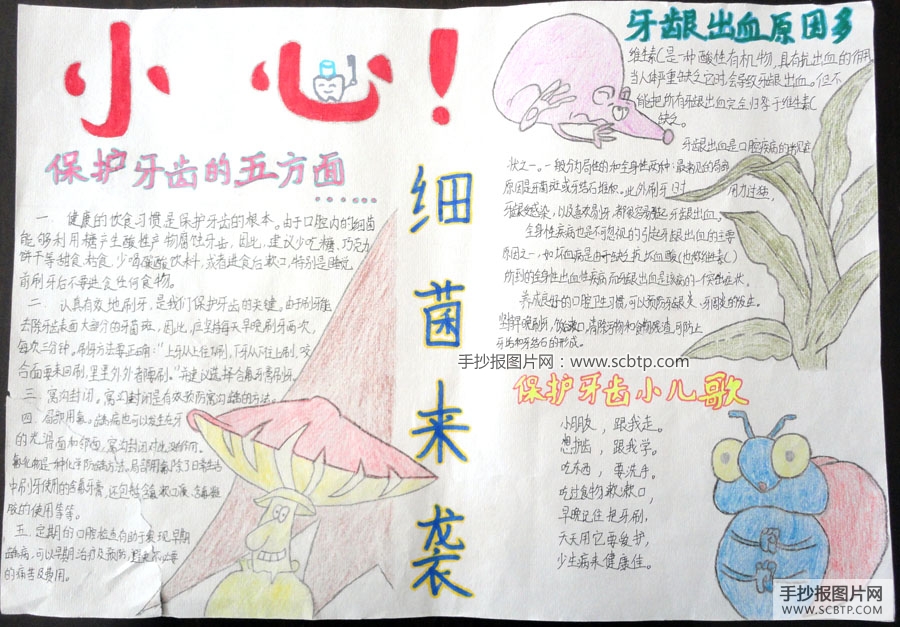 小心!
保护牙齿的五方面
一、健康的饮食习惯是保护牙齿的根本。由于口腔内的细菌
能够利用糖产生酸性产物腐蚀牙齿,因此,建议少吃糖、巧克力
饼干等甜食、粘食,少喝碳酸饮料,或者进食后漱口,特别是睡觉
前刷牙后不要进食任何食物。
二、认真有效地刷牙,是我们保护牙齿的关键。由于刷牙能
去除牙齿表面大部分的牙菌斑,因此,应坚持每天早晚刷牙两次,
每次三分钟。刷牙方法要正确:"上牙从上往下刷,下牙从下往上刷,咬
合面要来回刷,里里外外
三、窝沟封闭。窝沟封闭是有效预防窝沟龋的方法。
四、局部用氟。龋病也可以发生在牙
的光滑面和邻面,窝沟封闭对此
氟化物是一种化学防龋方法。局部用氟除了日常生活
中刷牙使用的含氟牙膏,还包括含氟漱口液、含氟凝
胶的使用等等。
五、定期的口腔检查有助于发现早期
龋病,可以早期治疗及预防,避免不必要
的痛苦及费用。
细菌来袭
牙龈出血原因多
维生素C是一种酸性有机物,具有抗出血的作用,
当人体严重缺乏它时会导致牙龈出血。但不
能把所有牙龈出血完全归咎于维生素C
缺乏。
牙龈出血是口腔疾病的常见症
状之一。一般分为局部性的和全身性两种:最常见的局部
原因是牙菌斑或牙结石堆积。此外刷牙时用力过猛,
牙髓感染,以及喜欢剔牙,都很容易引起牙龈出血。
全身性疾病也是不可忽视的引起牙龈出血的主要
原因之一。如坏血病是由于缺乏抗坏血酸(也称维生素C)
所引的全身性出血性疾病而牙龈出血是该病的一个突出症状。
养成良好的口腔卫生习惯,可以预防牙龈炎、牙周炎的发生。
坚持早晚刷牙,饭后漱口,清除牙垢和食物残渣,可防止
牙齿和牙结石的形成。
手抄报图片网:www.scbtp.com
保护牙齿小儿歌
小朋友,跟我走。
想护齿,跟我学。
吃东西,要洗手。
吃过食物漱漱口,
早晚记住把牙刷,
六天用它要爱护,
少生病来健康佳。
手抄报图片网
WWW.SCBTP.COM